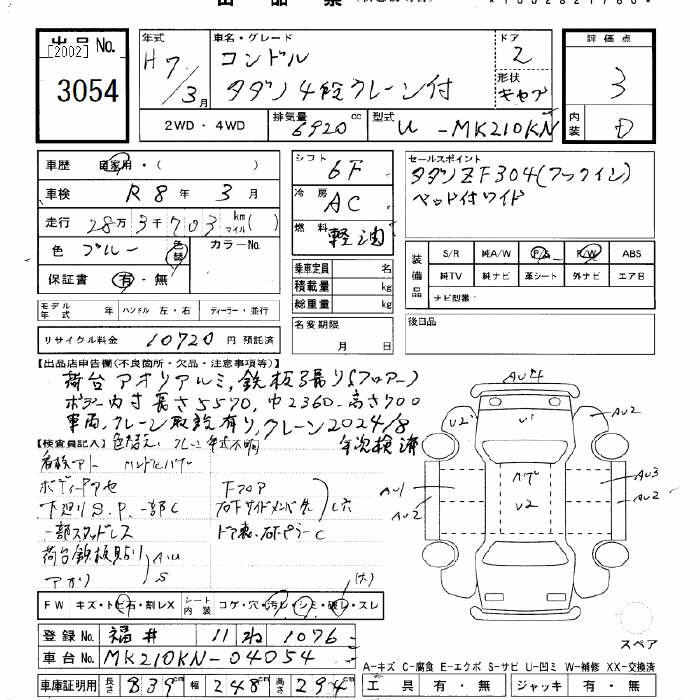 出品票
*1002821780*
出品No.
[2002]
3054
年式
H7/3月
車名・グレード
コンドル
タダノ4段クレーン付
ドア
2
形状
キャブ
2WD・4WD
排気量 6920 cc
型式 U-MK210KN
評価点
3
内装 D
車歴 自家用・( )
車検 R8年3月
走行 28万3千703 km マイル( )
色 ブルー 色替 カラーNo.
保証書 有・無
シフト 6F
冷房 AC
燃料 軽油
セールスポイント
タダノZF304(フックイン)
ベッド付ワイド
装備品 S/R 純A/W P/S P/W ABS
純TV 純ナビ 革シート 外ナビ エアB
ナビ型番:
乗車定員 名
積載量 kg
総重量 kg
モデル年式 年 ハンドル 左・右 ディーラー・並行
リサイクル料金 10720円 預託済
名変期限
月 日
後日品
【出品店申告欄(不良箇所・欠品・注意事項等)】
荷台アオリアルミ,鉄板張り(フロアー)
ボデー内寸長さ5570,巾2360,高さ400
車両,クレーン取説有り,クレーン2024/8
年次検済
【検査員記入】色替え、クレーン年式不明
看板アト ハンドルカバー
ボディーアセ 下フロア
下廻りS.P.一部C
一部スタッドレス
荷台鉄板貼り AU
アオリ S
AU4
AU2
U2
U1
AU1
AU2
U2
AU3
AU2
FW キズ・トビ石・割レX シート内装 コゲ・穴・汚レ・シミ・破レ・スレ
(大)
登録No. 福井 11 ね 1076
車台No. MK210KN-04054
車庫証明用 長さ 839cm 幅 248cm 高さ 294cm
スペア
A-キズ C-腐食 E-エクボ S-サビ U-凹ミ W-補修 XX-交換済
工具 有・無 ジャッキ 有・無